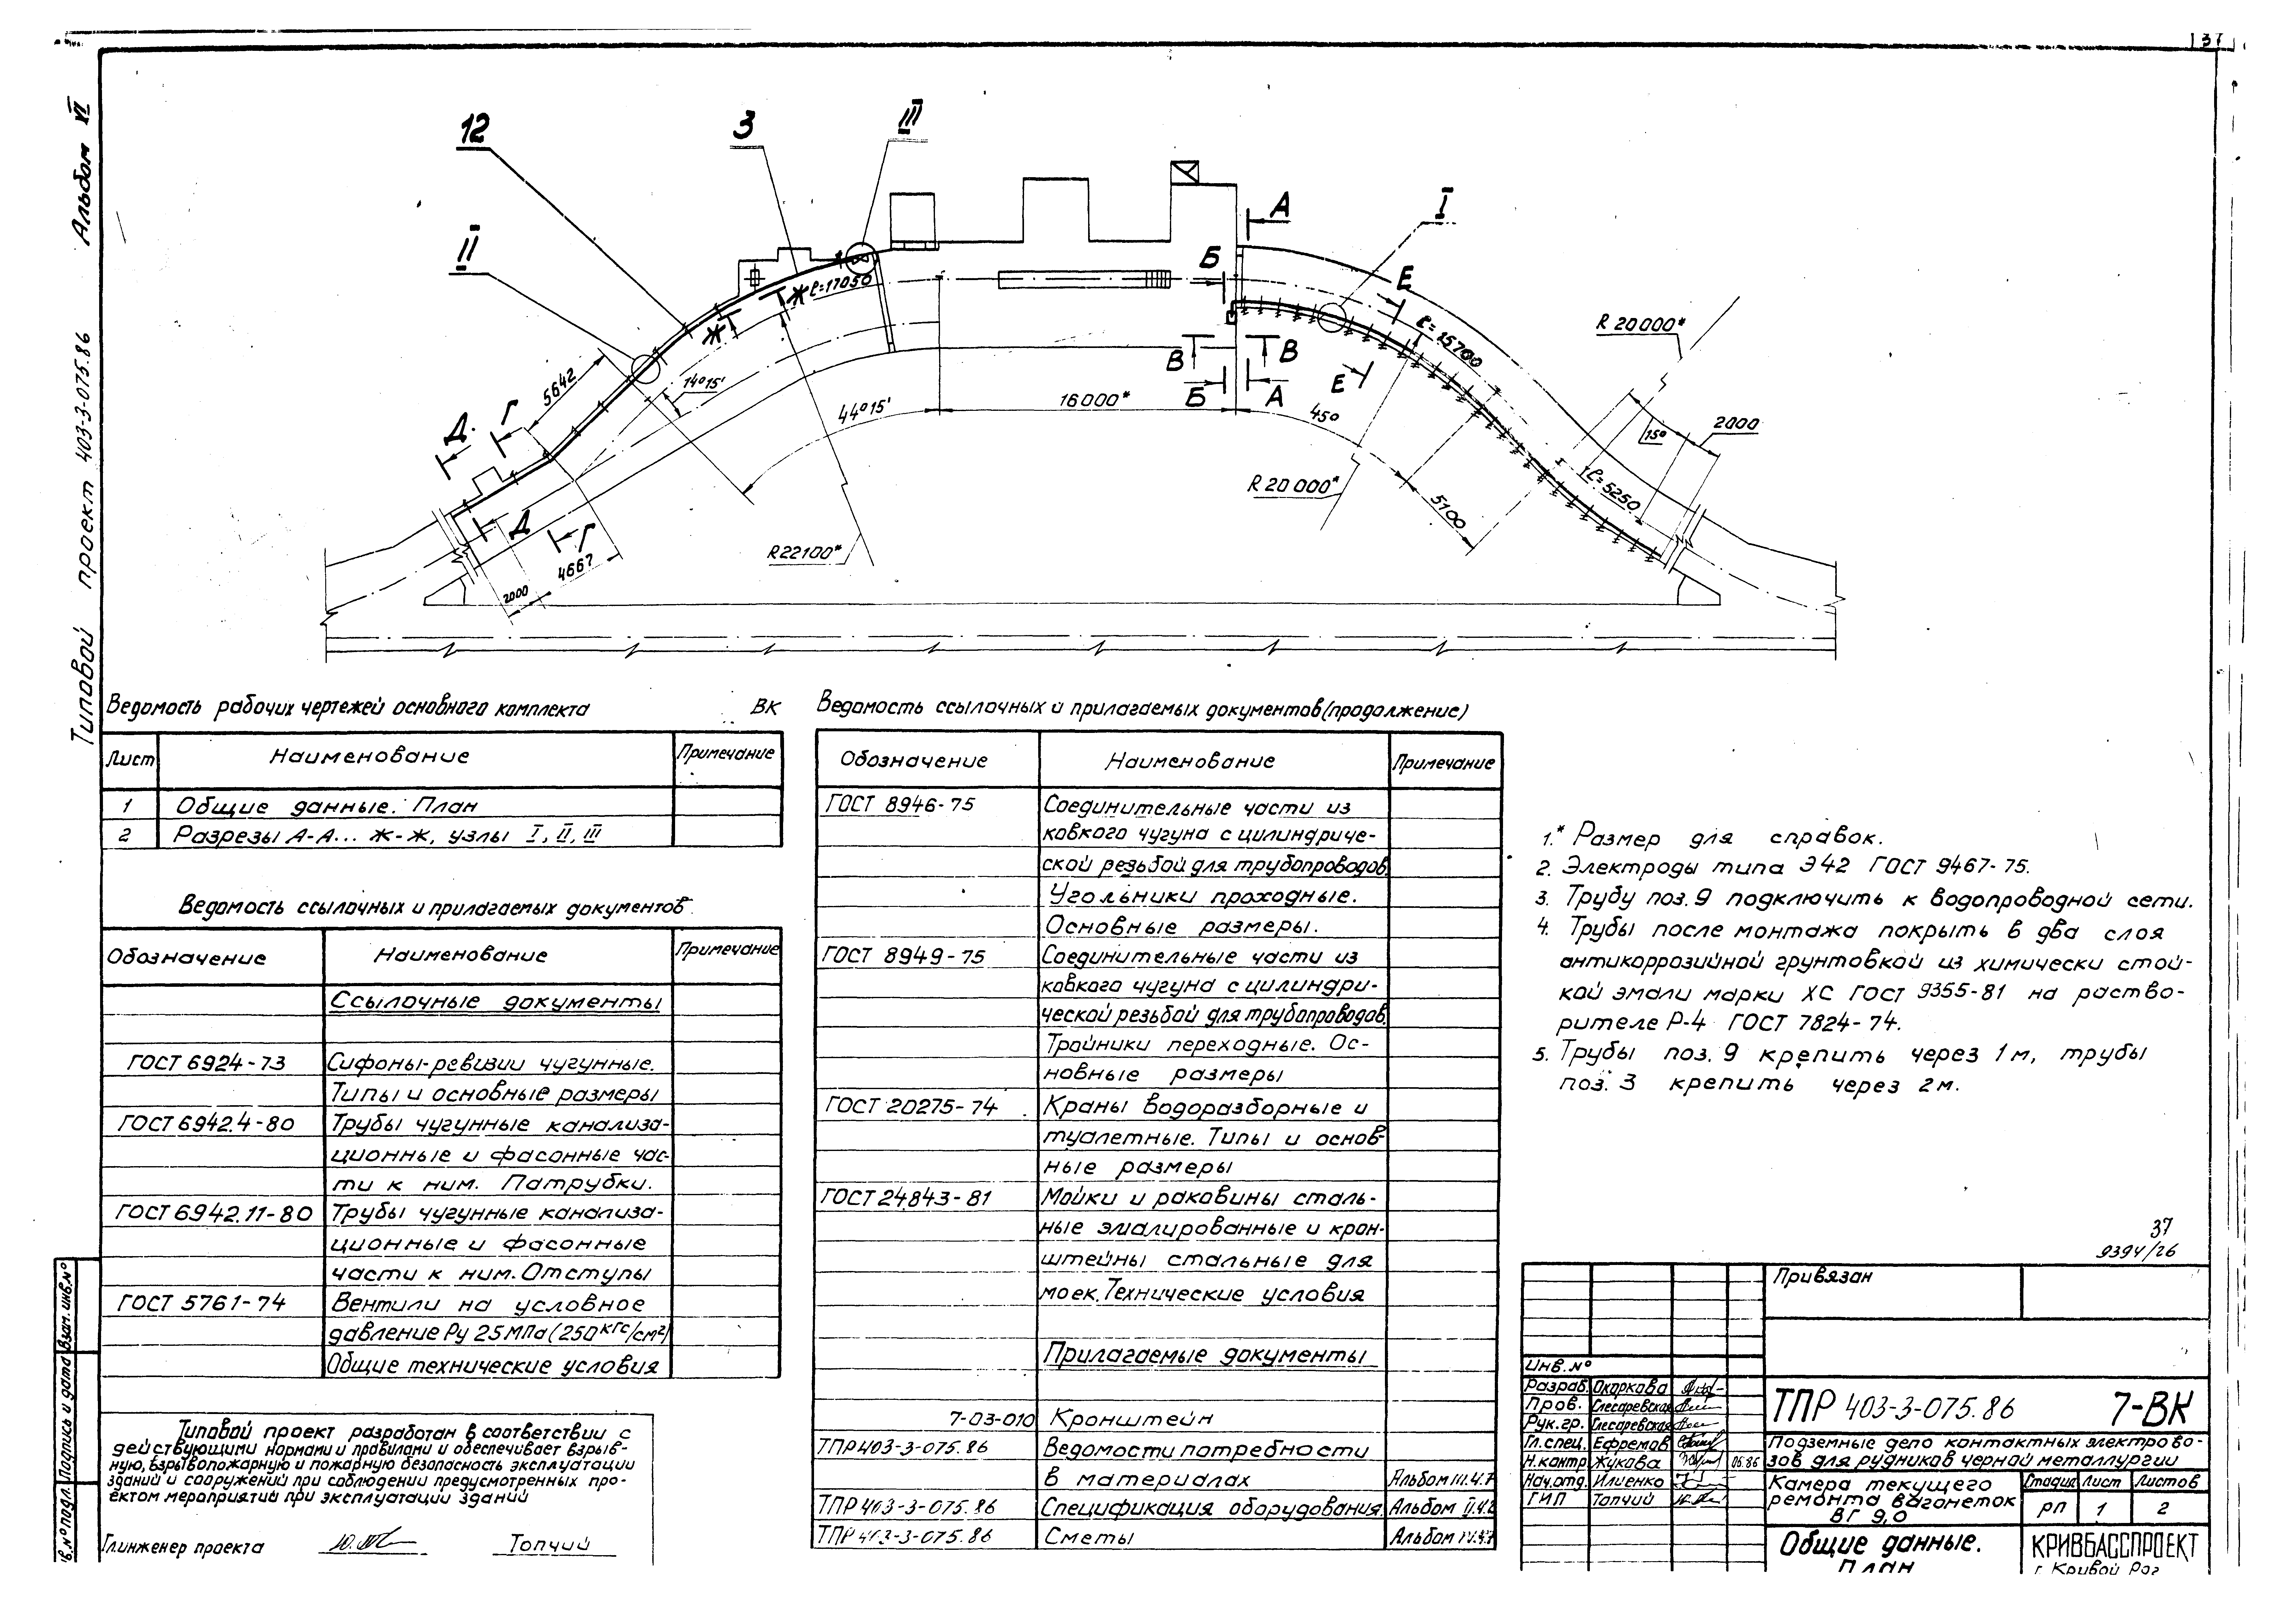 37
Типовой проект 403-3-075.86 Альбом VI
12
3
III
II
I
А
Б
Е
Ж
ℓ=17050
Ж
ℓ=15700
R 20000*
5642
14°15'
В
В
Е
Б
А
44°15'
16000*
45°
15°
2000
Д
Г
R 20 000*
5100
ℓ=5250
Д
Г
R22100*
4667
2000
Ведомость рабочих чертежей основного комплекта ВК
Лист Наименование Примечание
1 Общие данные. План
2 Разрезы А-А... Ж-Ж, узлы I, II, III
Ведомость ссылочных и прилагаемых документов
Обозначение Наименование Примечание
Ссылочные документы
ГОСТ 6924-73 Сифоны-ревизии чугунные.
Типы и основные размеры
ГОСТ 6942.4-80 Трубы чугунные канализа-
ционные и фасонные час-
ти к ним. Патрубки.
ГОСТ 6942.11-80 Трубы чугунные канализа-
ционные и фасонные
части к ним. Отступы
ГОСТ 5761-74 Вентили на условное
давление Ру 25 МПа (250 кгс/см²)
Общие технические условия
Типовой проект разработан в соответствии с
действующими нормами и правилами и обеспечивает взрыв-
ную, взрывопожарную и пожарную безопасность эксплуатации
зданий и сооружений при соблюдении предусмотренных про-
ектом мероприятий при эксплуатации зданий
Гл.инженер проекта Топчий
Ведомость ссылочных и прилагаемых документов (продолжение)
Обозначение Наименование Примечание
ГОСТ 8946-75 Соединительные части из
ковкого чугуна с цилиндриче-
ской резьбой для трубопроводов.
Угольники проходные.
Основные размеры.
ГОСТ 8949-75 Соединительные части из
ковкого чугуна с цилиндри-
ческой резьбой для трубопроводов.
Тройники переходные. Ос-
новные размеры
ГОСТ 20275-74 Краны водоразборные и
туалетные. Типы и основ-
ные размеры
ГОСТ 24843-81 Мойки и раковины сталь-
ные эмалированные и крон-
штейны стальные для
моек. Технические условия
Прилагаемые документы
7-03-010 Кронштейн
ТПР 403-3-075.86 Ведомости потребности
в материалах Альбом III.4.7
ТПР 403-3-075.86 Спецификация оборудования. Альбом
ТПР 403-3-075.86 Сметы Альбом
1.* Размер для справок.
2. Электроды типа Э42 ГОСТ 9467-75.
3. Трубу поз. 9 подключить к водопроводной сети.
4. Трубы после монтажа покрыть в два слоя
антикоррозийной грунтовкой из химически стой-
кой эмали марки ХС ГОСТ 9355-81 на раство-
рителе Р-4 ГОСТ 7824-74.
5. Трубы поз. 9 крепить через 1м, трубы
поз. 3 крепить через 2м.
37
9394/26
Привязан
Инв.№
Разраб. Окоркова
Пров. Слесаревская
Рук.гр. Слесаревская
Гл.спец. Ефремов
Н.контр. Жукова 06.86
Нач.отд. Илиенко
ГИП Топчий
ТПР 403-3-075.86 7-ВК
Подземные депо контактных электрово-
зов для рудников черной металлургии
Камера текущего
ремонта вагонеток
ВГ 9,0
Стадия Лист Листов
РП 1 2
Общие данные.
План
КРИВБАССПРОЕКТ
г. Кривой Рог
Взам. инв.№
Подпись и дата
в.№ подл.